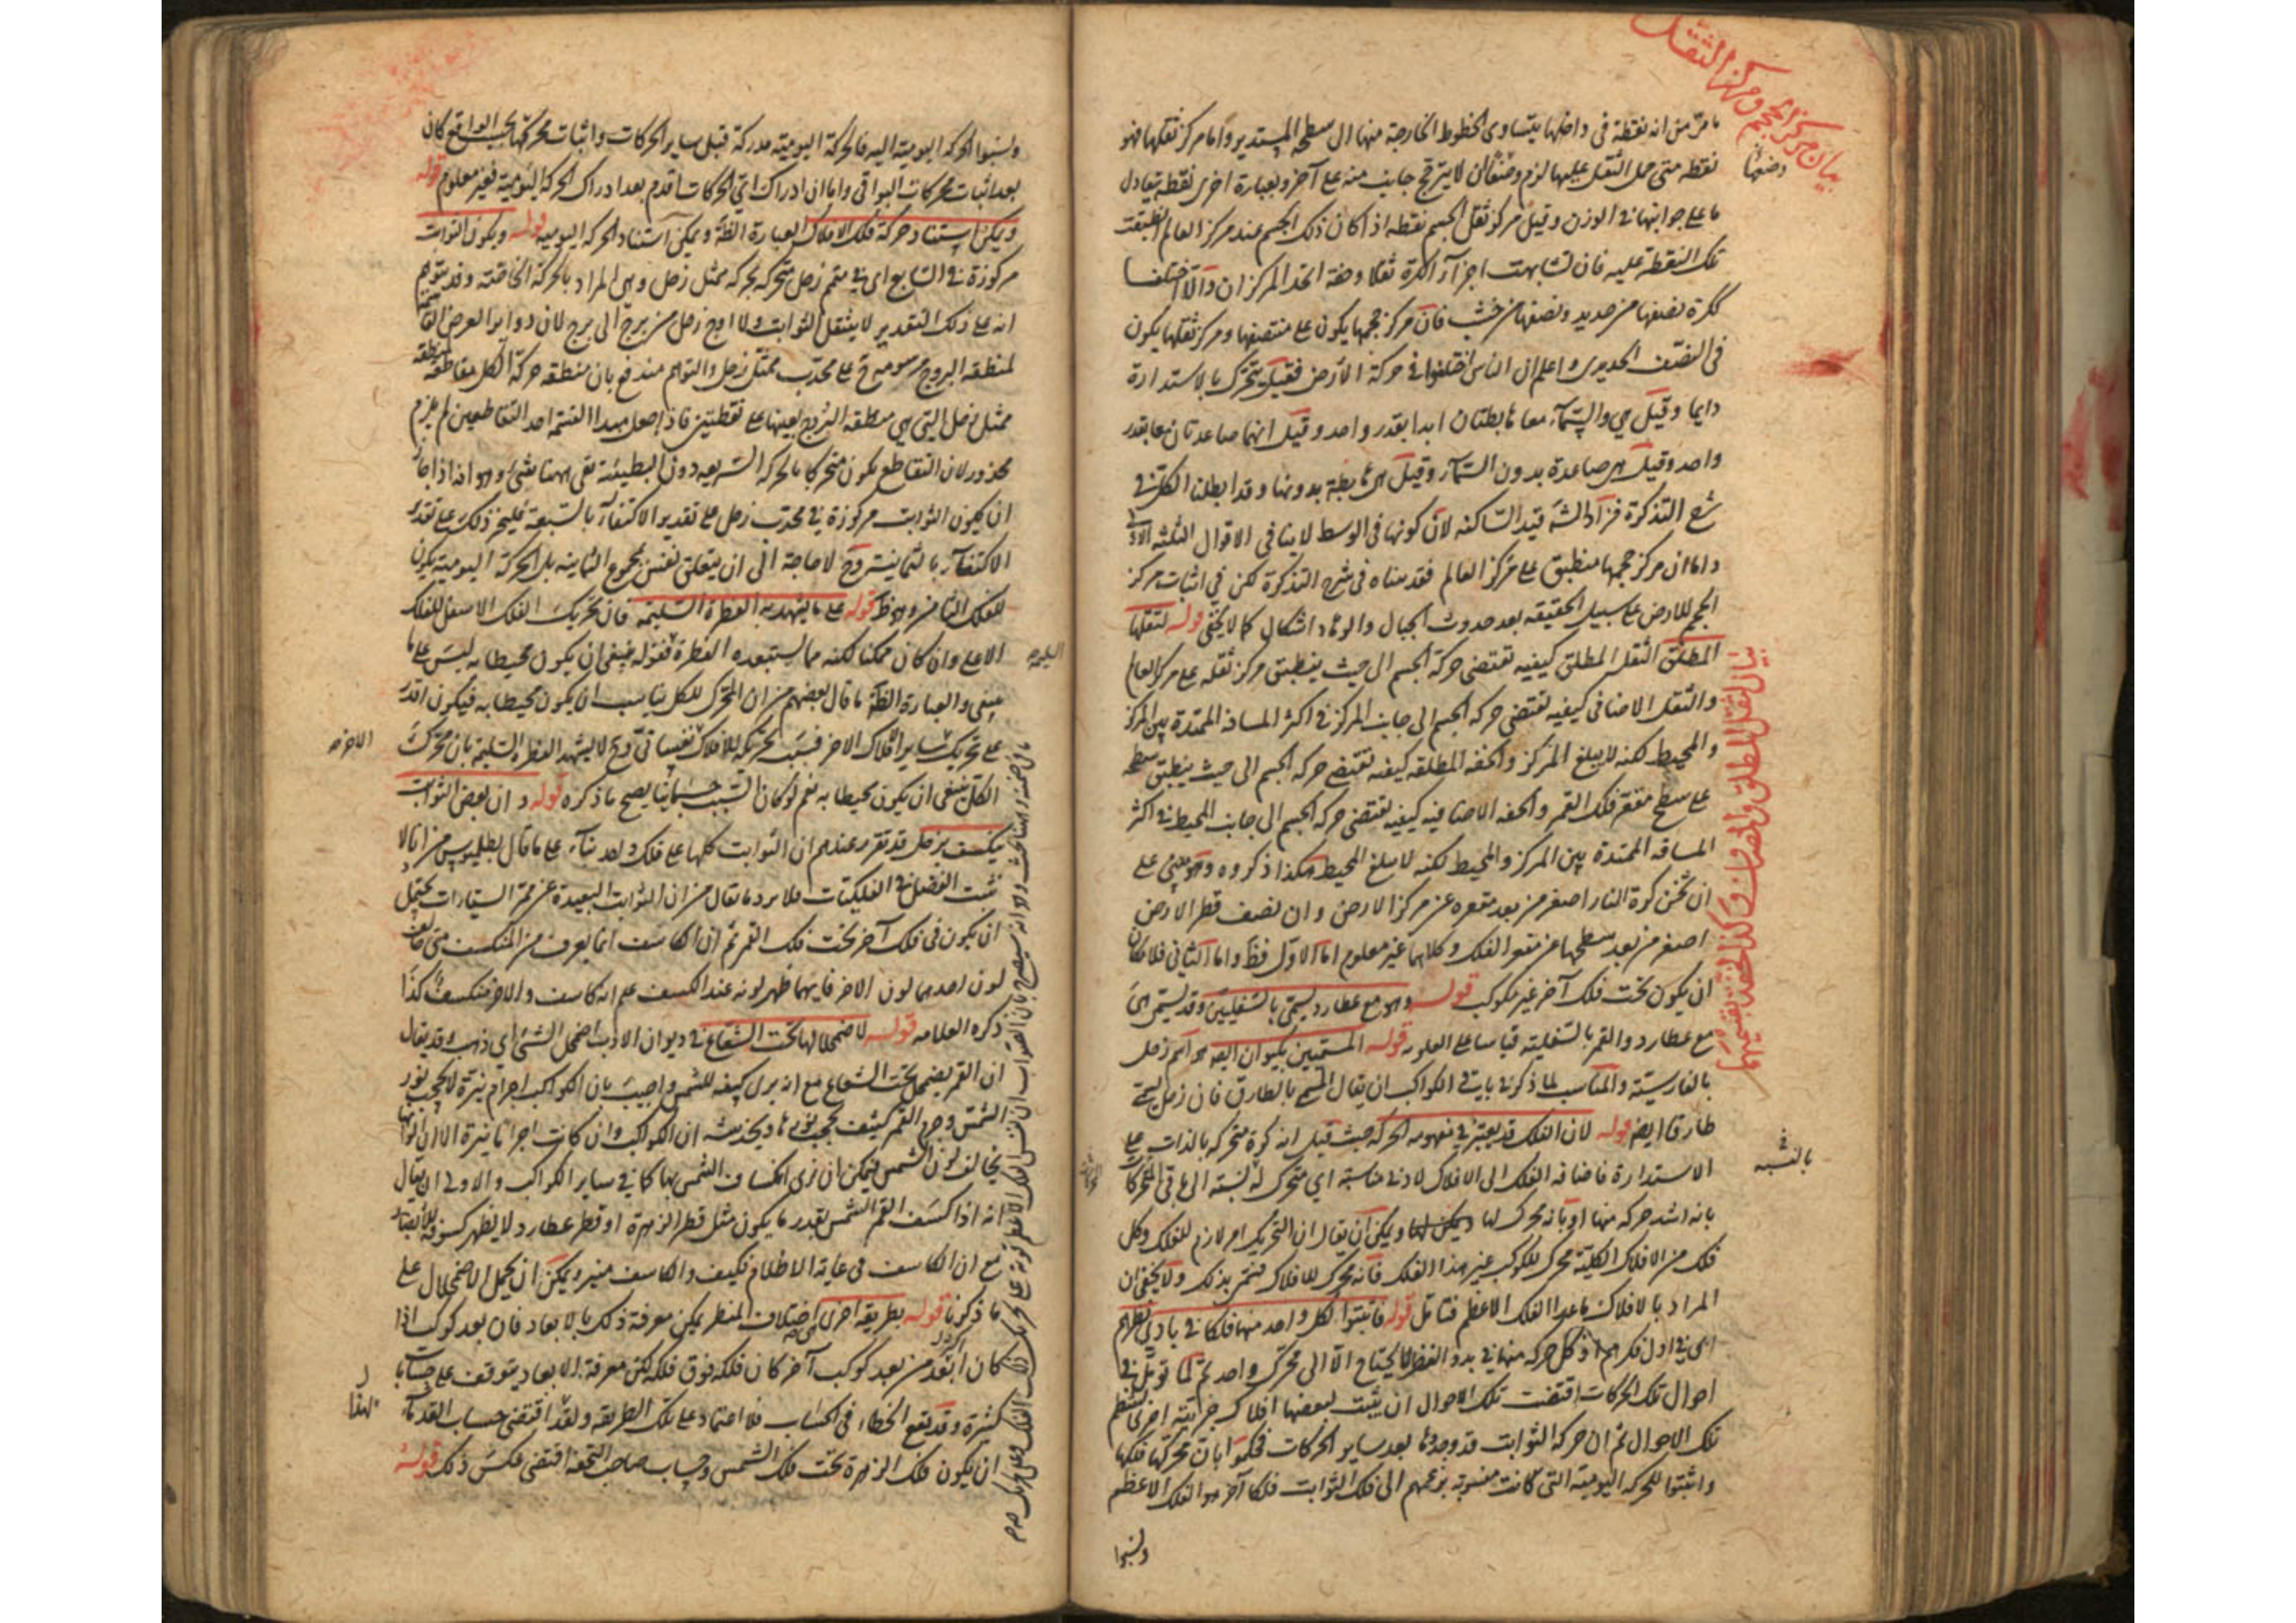 بيان مركز الحجم ومركز الثقل
ما مر من انه نقطة في داخلها يتساوى الخطوط الخارجة منها الى سطحه المستدير واما مركز ثقلها فهو
نقطة متى حمل الثقل عليها لزم وضعا ان لا يترجح جانب منه على آخر وبعبارة اخرى نقطة يتعادل
ما على جوانبها في الوزن وقيل مركز ثقل الجسم نقطة اذا كان ذلك الجسم عند مركز العالم انطبقت
تلك النقطة عليه فان تشابهت اجزاء الكرة ثقلا وخفة اتحد المركزان والا اختلفا
ككرة نصفها من حديد ونصفها من خشب فان مركز حجمها يكون على منتصفها ومركز ثقلها يكون
في النصف الحديدي واعلم ان الناس اختلفوا في حركة الارض فقيل يتحرك بالاستدارة
دايما وقيل هي والسماء معا هابطتان ابدا بقدر واحد وقيل انهما صاعدتان معا بقدر
واحد وقيل هي صاعدة بدون السماء وقيل هي هابطة بدونها وقد ابطلنا الكل في
شرح التذكرة فزاد الش قيد الساكنة لان كونها في الوسط لا ينافي الاقوال الثلثة الاول
واما ان مركز حجمها منطبق على مركز العالم فقد بيناه في شرح التذكرة لكن في اثبات مركز
الحجم للارض على سبيل الحقيقة بعد حدوث الجبال والوهاد اشكال كما لا يخفى قوله لثقلها
المطلق الثقل المطلق كيفية تقتضي حركة الجسم الى حيث ينطبق مركز ثقله على مركز العالم
والثقل الاضافي كيفية تقتضي حركة الجسم الى جانب المركز في اكثر المسافة الممتدة بين المركز
والمحيط لكنه لا يبلغ المركز والخفة المطلقة كيفية تقتضي حركة الجسم الى حيث ينطبق سطحه
على سطح مقعر فلك القمر والخفة الاضافية كيفية تقتضي حركة الجسم الى جانب المحيط في اكثر
المسافة الممتدة بين المركز والمحيط لكنه لا يبلغ المحيط هكذا ذكروه وهو مبني على
ان ثخن كرة النار اصغر من بعد مقعره عن مركز الارض وان نصف قطر الارض
اصغر من بعد سطحها عن مقعر الفلك وكلاهما غير معلوم اما الاول فظ واما الثاني فلامكان
ان يكون تحت فلك آخر غير مكوكب قوله وهو مع عطارد يسمى بالسفليين وقد يسمى هي
مع عطارد والقمر بالسفلية قياسا على العلوية قوله المسمين بكيوان ايضا هو اسم زحل
بالفارسية والمناسب لما ذكر في باقي الكواكب ان يقال المسمى بالطارق فان زحل يسمى
طارقا ايضا قوله لان الفلك قد يعتبر في مفهومه الحركة حيث قيل انه كرة متحركة بالذات على
الاستدارة فاضافة الفلك الى الافلاك لادنى مناسبة اي متحرك له نسبة الى باقي المتحركات
بانه اشد حركة منها او بانه محرك لها ويمكن ان يقال ان التحريك امر لازم للفلك وكل
فلك من الافلاك الكلية محرك للكوكب غير هذا الفلك فانه محرك للافلاك فتميز بذلك ولا يخفى ان
المراد بالافلاك ما عدا الفلك الاعظم فتامل قوله فاثبتوا لكل واحد منها فلكا في بادي نظرهم
اي في اول فكرهم اذ كل حركة منها في بدو النظر لا يحتاج الا الى محرك واحد ثم لما تؤمل في
احوال تلك الحركات اقتضت تلك الاحوال ان يثبت لبعضها افلاك جزئية اخرى لتنتظم
تلك الاحوال ثم ان حركة الثوابت قد وجدوها بعد ساير الحركات فحكموا بان محركها فلكها
واثبتوا للحركة اليومية التي كانت منسوبة بزعمهم الى فلك الثوابت فلكا آخر هو الفلك الاعظم
ونسبوا
بيان الثقل المطلق والمضاف وكذا الخفة بقسميها
بالنسبة
ونسبوا الحركة اليومية اليه فالحركة اليومية مدركة قبل ساير الحركات واثبات محركها بحسب الواقع كان
بعد اثبات محركات البواقي واما ان ادراك اي الحركات اقدم بعد ادراك الحركة اليومية فغير معلوم قوله
ويمكن استناد حركة فلك الافلاك العبارة الظاهرة ويمكن استناد الحركة اليومية قوله ويكون الثوابت
مركوزة في السابع اي في متمم زحل متحركة بحركة ممثل زحل وهي المراد بالحركة الخاصة وقد يتوهم
انه على ذلك التقدير لا ينتقل الثوابت ولا اوج زحل من برج الى برج لان دوائر العرض
لمنطقة البروج مرسومة ح على محدب ممثل زحل والتوهم مندفع بان منطقة حركة الكل مقاطعة لمنطقة
ممثل زحل التي هي منطقة البروج بعينها على نقطتين فاذا جعل مبدا القسمة احد التقاطعين لم يلزم
محذور لان التقاطع يكون متحركا بالحركة السريعة دون البطيئة بقي ههنا شيء وهو انه اذا جاز
ان يكون الثوابت مركوزة في محدب زحل على تقدير الاكتفاء بالسبعة فليجز ذلك على تقدير
الاكتفاء بالثمانية وح لا حاجة الى ان يتعلق نفس بمجموع الثمانية بل الحركة اليومية يكون
للفلك الثامن وهو ظ قوله على ما يشهد به الفطرة السليمة فان تحريك الفلك الاسفل للفلك
الاعلى وان كان ممكنا لكنه مما يستبعده الفطرة فقوله ينبغي ان يكون محيطا به ليس على ما
ينبغي والعبارة الظاهرة ما قال بعضهم من ان المحرك للكل يناسب ان يكون محيطا به فيكون اقدر
على تحريك ساير الافلاك الاخر فسبب تحريكه للافلاك نفساني وح لا يشهد الفطرة السليمة بان محرك
الكل ينبغي ان يكون محيطا به نعم لو كان السبب جسمانيا يصح ما ذكره قوله وان بعض الثوابت
ينكسف بزحل قد تقرر عندهم ان الثوابت كلها على فلك واحد بناء على ما قال بطلميوس من انا لا
نثبت الفضل في الفلكيات فلا يرد ما يقال من ان الثوابت البعيدة عن ممر السيارات يحتمل
ان يكون في فلك آخر تحت فلك القمر ثم ان الكاسف انما يعرف من المنكسف متى خالف
لون احدهما لون الاخر فايهما ظهر لونه عند الكسف علم انه كاسف والاخر منكسف كذا
ذكره العلامة قوله لاضمحلالها تحت الشعاع في ديوان الادب اضمحل الشيء اي ذهب وقد يقال
ان القمر يضمحل تحت الشعاع مع انه يرى كسفه للشمس واجيب بان الكواكب اجرام نيرة لا يحجب نور
الشمس وجرم القمر كثيف يحجب نورها ويخدشه ان الكواكب وان كانت اجراما نيرة الا ان الوانها
يخالف لون الشمس فيمكن ان نرى انكساف الشمس بها كما في ساير الكواكب والاولى ان يقال
انه اذا كسف القمر الشمس بقدر ما يكون مثل قطر الزهرة او قطر عطارد لا يظهر كسوفه للابصار
مع ان الكاسف في غاية الاظلام فكيف والكاسف منير ويمكن ان يحمل الاضمحلال على
ما ذكرنا قوله بطريقة اخرى اختلاف المنظر يمكن معرفة ذلك بالابعاد فان بعد كوكب اذا
كان ابعد من بعد كوكب آخر كان فلكه فوق فلكه لكن معرفة الابعاد يتوقف على حسابات
كثيرة وقد يقع الخطاء في الحساب فلا اعتماد على تلك الطريقة ولقد اقتضى حساب القدماء
ان يكون فلك الزهرة تحت فلك الشمس وحساب صاحب التحفة اقتضى عكس ذلك قوله